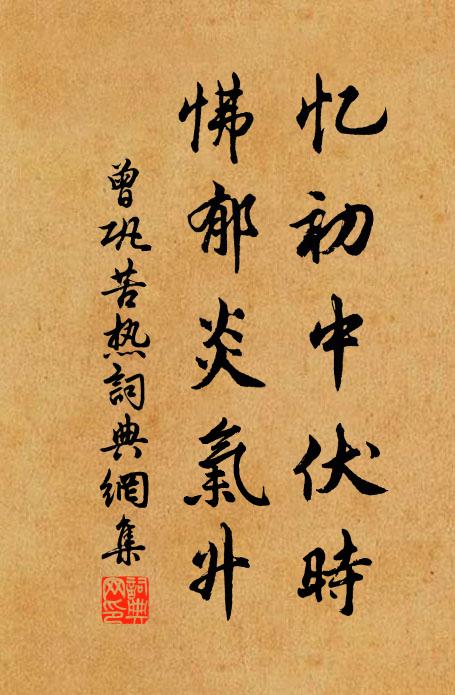 忆初中伏時
怫郁炎氣升
曾巩苦热詞典網集
詞典網印